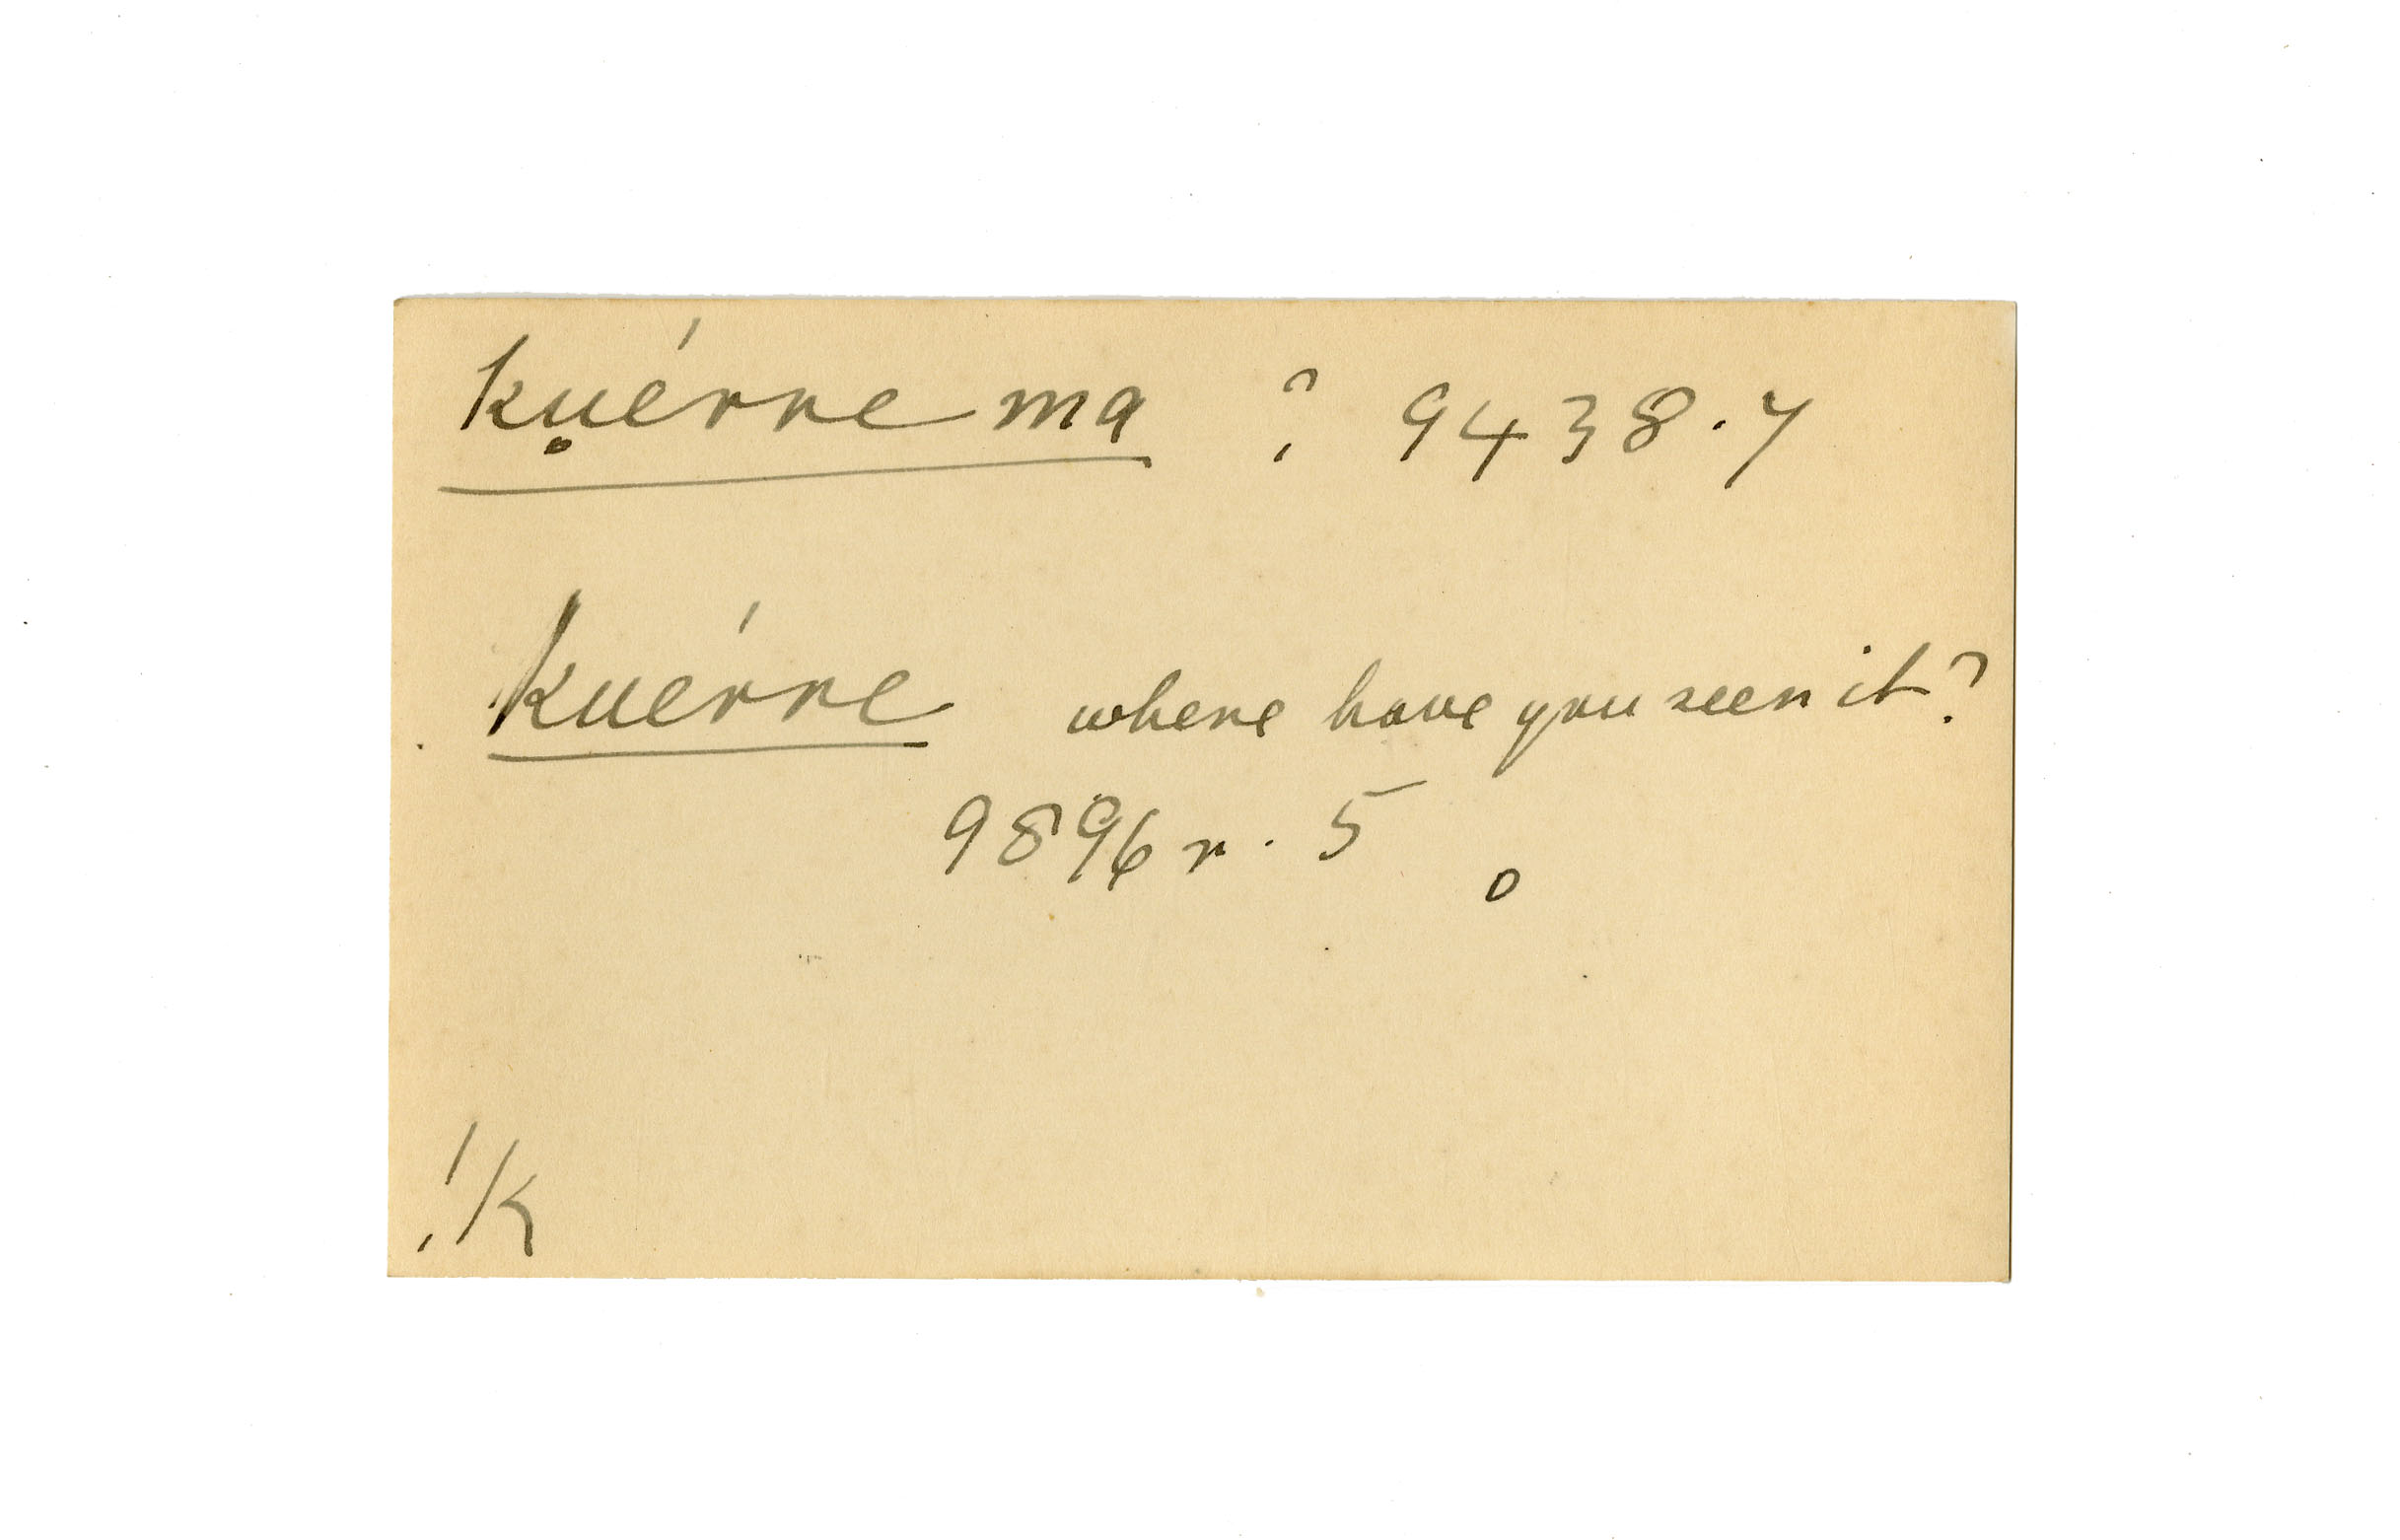 ku̥érre ma ? 9438.7
kuérre where have you seen it?
9896r. 5 o
!K